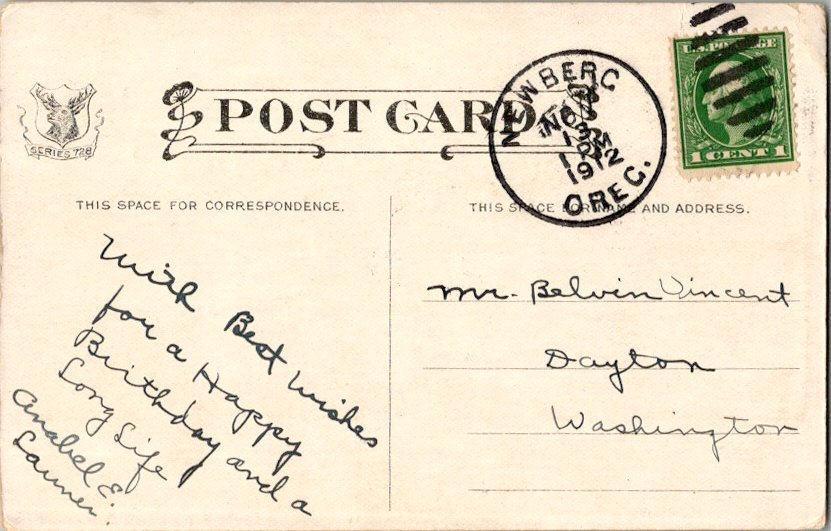 SERIES 728
POST CARD
NEWBERG
NOV
13
1912
OREG.
U.S. POSTAGE
1 CENT 1
THIS SPACE FOR CORRESPONDENCE.
THIS SPACE FOR NAME AND ADDRESS.
With Best Wishes
for a Happy
Birthday and a
Long Life
Anabel E.
Mr. Belvin Vincent
Dayton
Washington